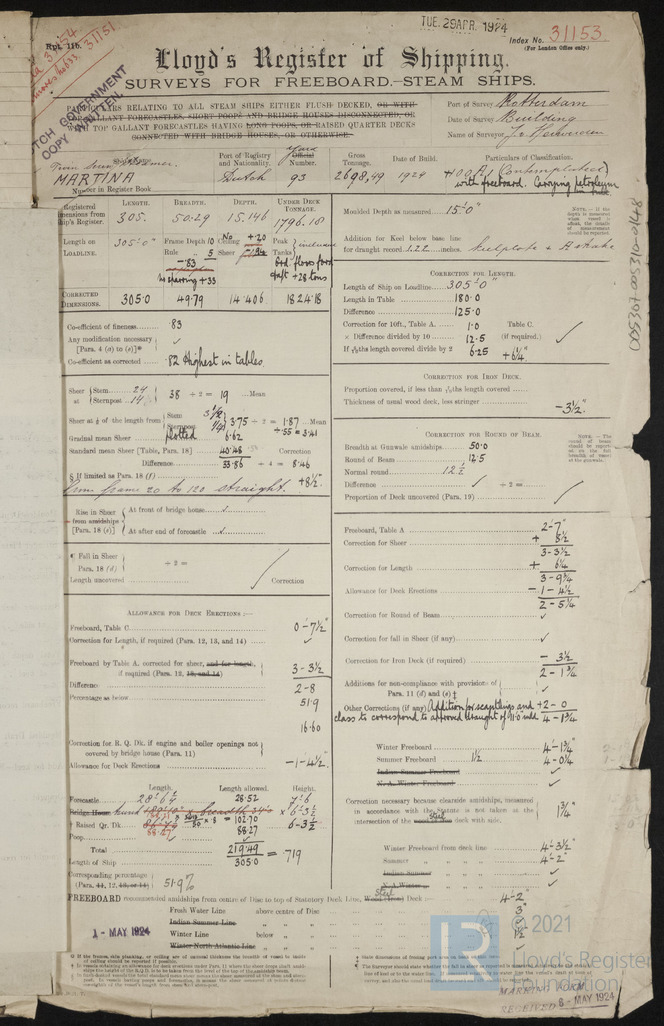 TUE. 29 APR. 1924
Rpt. 11b.
31154
31151
Index No. 31153
(For London Office only.)
Lloyd's Register of Shipping.
SURVEYS FOR FREEBOARD.—STEAM SHIPS.
DUTCH GOVERNMENT
COPY WRITTEN.
PARTICULARS RELATING TO ALL STEAM SHIPS EITHER FLUSH DECKED, OR WITH
TOP GALLANT FORECASTLES, SHORT POOPS AND BRIDGE HOUSES DISCONNECTED, OR
WITH TOP GALLANT FORECASTLES HAVING LONG POOPS, OR RAISED QUARTER DECKS
CONNECTED WITH BRIDGE HOUSES, OR OTHERWISE.
Port of Survey Rotterdam
Date of Survey Building
Name of Surveyor
MARTINA
Number in Register Book
Port of Registry and Nationality.
Dutch
Yard
Official Number.
93
Gross Tonnage.
2698,49
Date of Build.
1924
Particulars of Classification.
+100A1 (Contemplated)
with freeboard. Carrying petroleum
Registered dimensions from Ship's Register.
LENGTH. BREADTH. DEPTH. UNDER DECK TONNAGE.
305. 50.29 15.146 1796.18
Length on LOADLINE.
305'-0" Frame Depth 10 Ceiling No +.20 Peak Tanks included
Rule .. 5 Sheer
-.83
sparring +.33
aft +28 tons
CORRECTED DIMENSIONS.
305.0 49.79 14.406 1824.18
Moulded Depth as measured 15'-0"
Addition for Keel below base line
for draught record 1.22 inches. keelplate + A strake
NOTE.—If the depth is measured when afloat, the mode of measurement should be reported.
005307-005310-0148
CORRECTION FOR LENGTH.
Length of Ship on Loadline 305'-0"
Length in Table 180.0
Difference 125.0
Correction for 10ft., Table A. 1.0 Table C.
× Difference divided by 10 12.5 (if required.)
If 6/10ths length covered divide by 2 6.25 + 6 1/4"
Co-efficient of fineness .83
Any modification necessary
[Para. 4 (a) to (e)]*
Co-efficient as corrected .82 Highest in tables
CORRECTION FOR IRON DECK.
Proportion covered, if less than 7/10ths length covered
Thickness of usual wood deck, less stringer
-3 1/2"
Sheer at Stem 24
Sternpost 14
38 ÷ 2 = 19 Mean
Sheer at 1/8 of the length from Stem
Sternpost
3.75 ÷ 2 = 1.87 Mean
÷.55 = 3.41
Gradual mean Sheer plotted 6.62
Standard mean Sheer [Table, Para. 18] 40.48 Correction
Difference 33.86 ÷ 4 = 8.46
§ If limited as Para. 18 (f) +8 1/2"
From frame 20 to 120 straight.
CORRECTION FOR ROUND OF BEAM.
Breadth at Gunwale amidships 50.0
Round of Beam 12.5
Normal round 12 1/2
Difference ÷ 2 =
Proportion of Deck uncovered (Para. 19)
NOTE.—The round of beam should be reported on the full breadth of vessel at the gunwale.
Rise in Sheer from amidships [Para. 18 (e)]
At front of bridge house
At after end of forecastle
¶ Fall in Sheer
Para. 18 (d) ÷ 2 =
Length uncovered Correction
Freeboard, Table A 2-7"
Correction for Sheer + 8 1/2
3-3 1/2
Correction for Length + 6 1/4
3-9 3/4
Allowance for Deck Erections -1-4 1/2
2-5 1/4
Correction for Round of Beam
Correction for fall in Sheer (if any)
Correction for Iron Deck (if required) - 3 1/2
2-1 3/4
Additions for non-compliance with provisions of
Para. 11 (d) and (e) ‡
Other Corrections (if any) Addition for scantlings and +2-0
class to correspond to approved draught of 11'0 mld 4-1 3/4
ALLOWANCE FOR DECK ERECTIONS:—
Freeboard, Table C 0'-7 1/2"
Correction for Length, if required (Para. 12, 13, and 14)
Freeboard by Table A. corrected for sheer, and for length,
if required (Para. 12, 13, and 14) 3-3 1/2
Difference 2-8
Percentage as below 51.9
16.60
Correction for R. Q. Dk. if engine and boiler openings not
covered by bridge house (Para. 11)
Allowance for Deck Erections -1-4 1/2"
Winter Freeboard 4'-1 3/4"
Summer Freeboard 1 1/2 4-0 1/4
Indian Summer Freeboard
N. A. Winter Freeboard
Correction necessary because clearside amidships, measured
in accordance with the Statute is not taken at the
intersection of the wood or iron Steel deck with side.
1 3/4"
Length. Length allowed. Height.
Forecastle 28'6" 28.52 7'-6"
Bridge House × .8 = 102.70 × 6'-3 1/2
† Raised Qr. Dk. 88.27 88.27 6-3 1/2
Poop
Total 219.49 = .719
Length of Ship 305.0
Corresponding percentage
(Para. 11, 12, 13, or 14) 51.9%
Winter Freeboard from deck line 4'-3 1/2"
Summer " " " " 4'-2"
Indian Summer " "
N.A. Winter " "
FREEBOARD recommended amidships from centre of Disc to top of Statutory Deck Line, Wood (Iron) Steel Deck 4-2"
Fresh Water Line above centre of Disc 3"
Indian Summer Line " "
Winter Line below " 1 1/2
Winter North Atlantic Line " "
1 - MAY 1924
LR
© 2021
Lloyd's Register
Foundation
MARKING FORM
RECEIVED 8 - MAY 1924